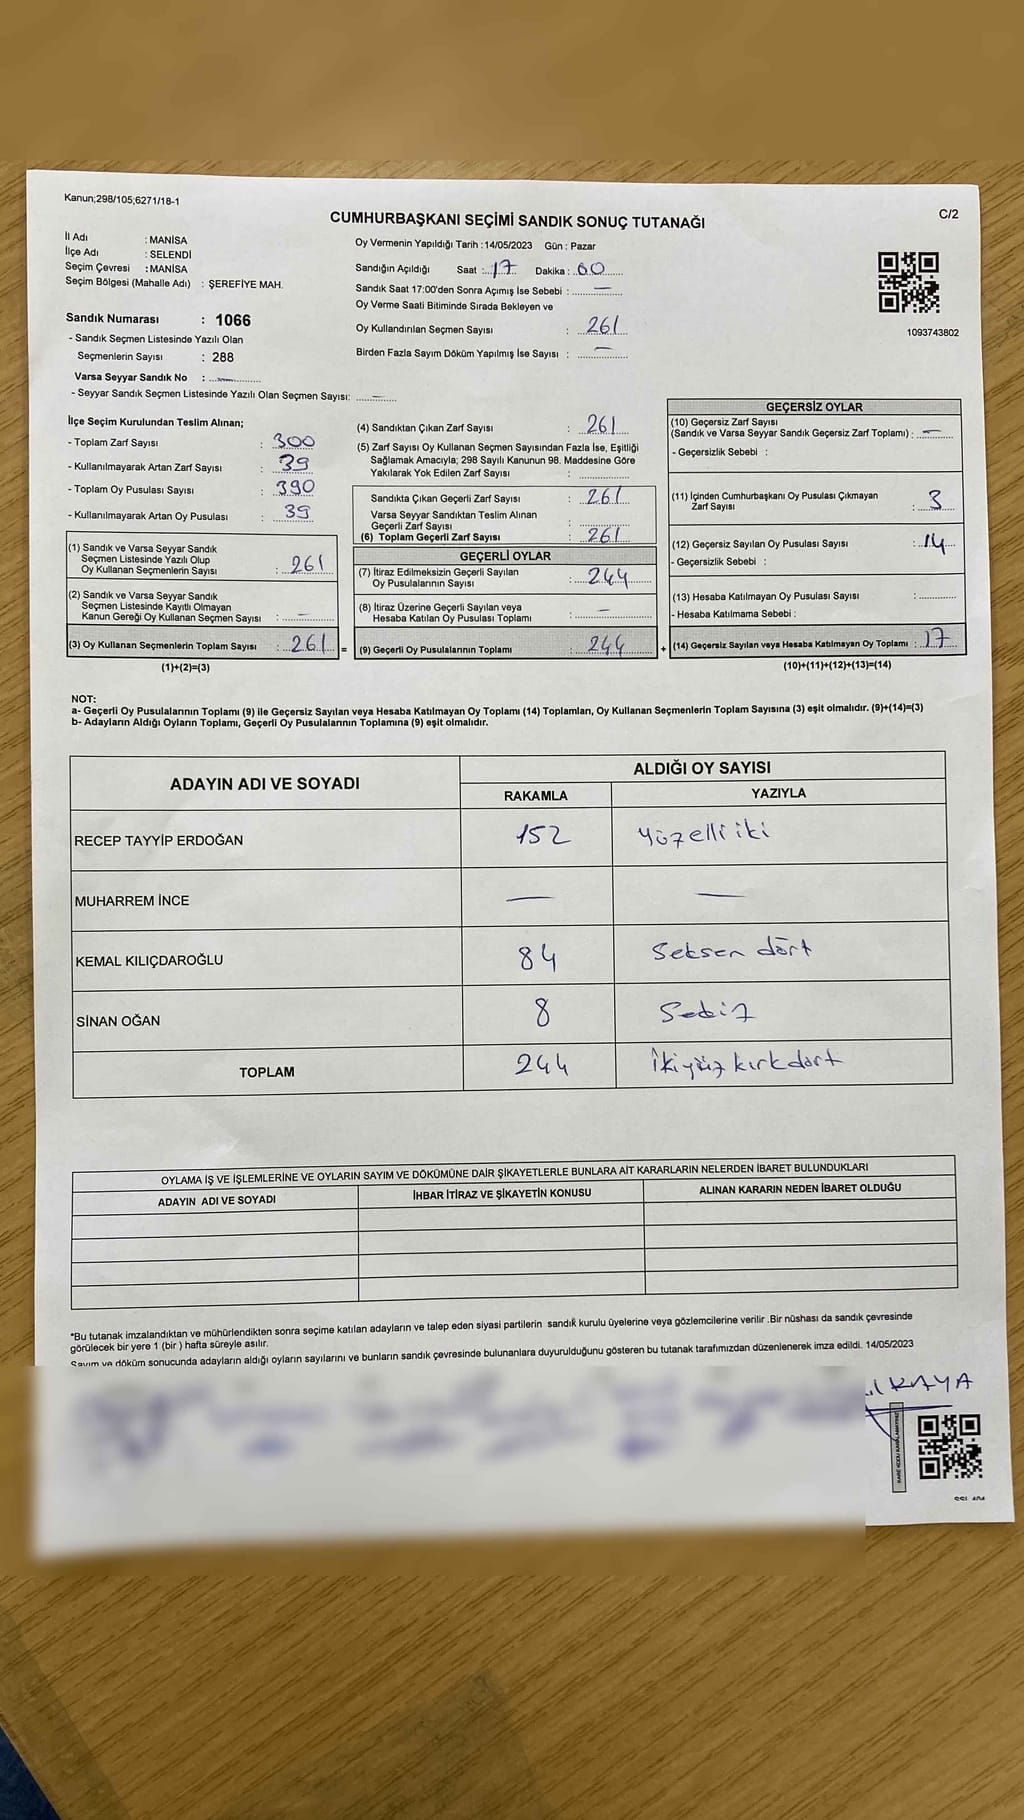 Kanun;298/105;6271/18-1
C/2
CUMHURBAŞKANI SEÇİMİ SANDIK SONUÇ TUTANAĞI
İl Adı : MANİSA
İlçe Adı : SELENDİ
Seçim Çevresi : MANİSA
Seçim Bölgesi (Mahalle Adı) : ŞEREFİYE MAH.
Sandık Numarası : 1066
- Sandık Seçmen Listesinde Yazılı Olan
Seçmenlerin Sayısı : 288
Varsa Seyyar Sandık No : —
- Seyyar Sandık Seçmen Listesinde Yazılı Olan Seçmen Sayısı: —
Oy Vermenin Yapıldığı Tarih :14/05/2023 Gün : Pazar
Sandığın Açıldığı Saat : 17 Dakika : 00
Sandık Saat 17:00'den Sonra Açımış İse Sebebi : —
Oy Verme Saati Bitiminde Sırada Bekleyen ve
Oy Kullandırılan Seçmen Sayısı : 261
Birden Fazla Sayım Döküm Yapılmış İse Sayısı : —
1093743802
İlçe Seçim Kurulundan Teslim Alınan;
- Toplam Zarf Sayısı : 300
- Kullanılmayarak Artan Zarf Sayısı : 39
- Toplam Oy Pusulası Sayısı : 390
- Kullanılmayarak Artan Oy Pusulası : 39
(1) Sandık ve Varsa Seyyar Sandık
Seçmen Listesinde Yazılı Olup
Oy Kullanan Seçmenlerin Sayısı : 261
(2) Sandık ve Varsa Seyyar Sandık
Seçmen Listesinde Kayıtlı Olmayan
Kanun Gereği Oy Kullanan Seçmen Sayısı : —
(3) Oy Kullanan Seçmenlerin Toplam Sayısı : 261 =
(1)+(2)=(3)
(4) Sandıktan Çıkan Zarf Sayısı : 261
(5) Zarf Sayısı Oy Kullanan Seçmen Sayısından Fazla İse, Eşitliği
Sağlamak Amacıyla; 298 Sayılı Kanunun 98. Maddesine Göre
Yakılarak Yok Edilen Zarf Sayısı :
Sandıkta Çıkan Geçerli Zarf Sayısı : 261
Varsa Seyyar Sandıktan Teslim Alınan
Geçerli Zarf Sayısı :
(6) Toplam Geçerli Zarf Sayısı : 261
GEÇERLİ OYLAR
(7) İtiraz Edilmeksizin Geçerli Sayılan
Oy Pusulalarının Sayısı : 244
(8) İtiraz Üzerine Geçerli Sayılan veya
Hesaba Katılan Oy Pusulası Toplamı : —
(9) Geçerli Oy Pusulalarının Toplamı : 244 +
GEÇERSİZ OYLAR
(10) Geçersiz Zarf Sayısı
(Sandık ve Varsa Seyyar Sandık Geçersiz Zarf Toplamı) : —
- Geçersizlik Sebebi :
(11) İçinden Cumhurbaşkanı Oy Pusulası Çıkmayan
Zarf Sayısı : 3
(12) Geçersiz Sayılan Oy Pusulası Sayısı : 14
- Geçersizlik Sebebi :
(13) Hesaba Katılmayan Oy Pusulası Sayısı :
- Hesaba Katılmama Sebebi :
(14) Geçersiz Sayılan veya Hesaba Katılmayan Oy Toplamı : 17
(10)+(11)+(12)+(13)=(14)
NOT:
a- Geçerli Oy Pusulalarının Toplamı (9) ile Geçersiz Sayılan veya Hesaba Katılmayan Oy Toplamı (14) Toplamları, Oy Kullanan Seçmenlerin Toplam Sayısına (3) eşit olmalıdır. (9)+(14)=(3)
b- Adayların Aldığı Oyların Toplamı, Geçerli Oy Pusulalarının Toplamına (9) eşit olmalıdır.
ADAYIN ADI VE SOYADI
ALDIĞI OY SAYISI
RAKAMLA YAZIYLA
RECEP TAYYİP ERDOĞAN 152 yüzelli iki
MUHARREM İNCE — —
KEMAL KILIÇDAROĞLU 84 Seksen dört
SİNAN OĞAN 8 Sekiz
TOPLAM 244 İkiyüz kırkdört
OYLAMA İŞ VE İŞLEMLERİNE VE OYLARIN SAYIM VE DÖKÜMÜNE DAİR ŞİKAYETLERLE BUNLARA AİT KARARLARIN NELERDEN İBARET BULUNDUKLARI
ADAYIN ADI VE SOYADI İHBAR İTİRAZ VE ŞİKAYETİN KONUSU ALINAN KARARIN NEDEN İBARET OLDUĞU
*Bu tutanak imzalandıktan ve mühürlendikten sonra seçime katılan adayların ve talep eden siyasi partilerin sandık kurulu üyelerine veya gözlemcilerine verilir .Bir nüshası da sandık çevresinde
görülecek bir yere 1 (bir ) hafta süreyle asılır.
Sayım ve döküm sonucunda adayların aldığı oyların sayılarını ve bunların sandık çevresinde bulunanlara duyurulduğunu gösteren bu tutanak tarafımızdan düzenlenerek imza edildi. 14/05/2023
KAYA